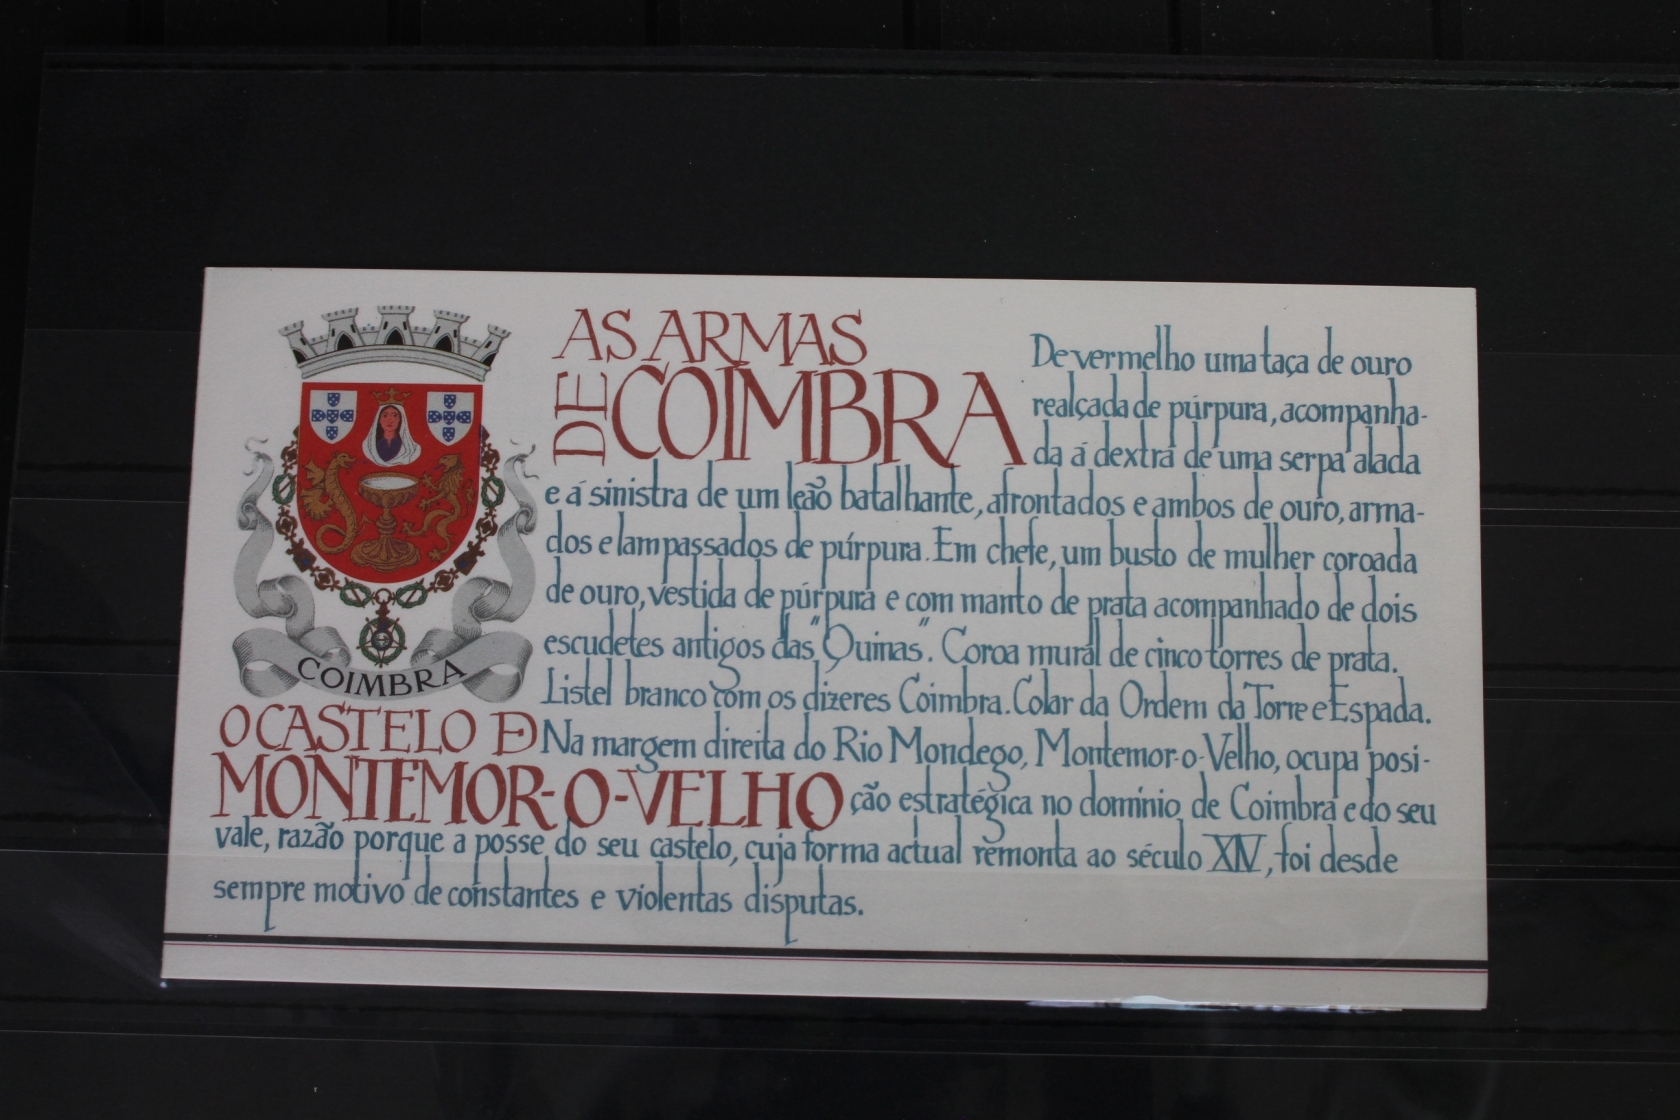 AS ARMAS
DE COIMBRA
De vermelho uma taça de ouro
realçada de púrpura, acompanha-
da á dextra de uma serpa alada
e á sinistra de um leão batalhante, afrontados e ambos de ouro, arma-
dos e lampassados de púrpura. Em chefe, um busto de mulher coroada
de ouro, vestida de púrpura e com manto de prata acompanhado de dois
escudetes antigos das "Quinas". Coroa mural de cinco torres de prata.
Listel branco com os dizeres Coimbra. Colar da Ordem da Torre e Espada.
COIMBRA
O CASTELO DE
MONTEMOR-O-VELHO
Na margem direita do Rio Mondego, Montemor-o-Velho, ocupa posi-
ção estratégica no domínio de Coimbra e do seu
vale, razão porque a posse do seu castelo, cuja forma actual remonta ao século XIV, foi desde
sempre motivo de constantes e violentas disputas.